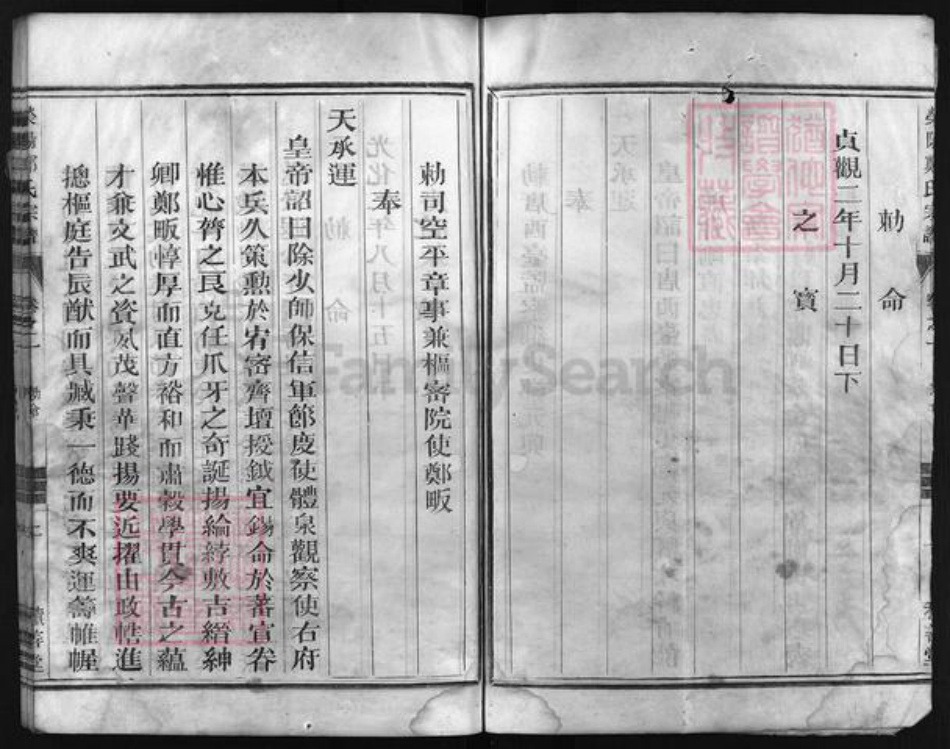 勅命
貞觀二年十月二十日下
之寳
勅司空平章事兼樞密院使鄭畋
奉
天承運
皇帝詔曰除少師保信軍節度使體泉觀察使右府
本兵久策勲於宥密齊壇授鉞宜錫命於蕃宣眷
惟心膂之良克任爪牙之奇誕揚綸綍敷吉縉紳
卿鄭畋惇厚而直方裕和而肅穀學貫今古之蘊
才兼文武之資夙茂聲華踐揚要近擢由政幄進
摠樞庭告辰猷而具臧秉一德而不爽運籌帷幄
滎陽鄭氏宗譜
卷之一
勅命
FamilySearch